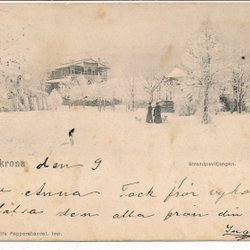 krona
Strandpaviljongen.
den 9
Anna Tack för vyko
hälsa dem alla från din
lts Pappershandel, Imp.